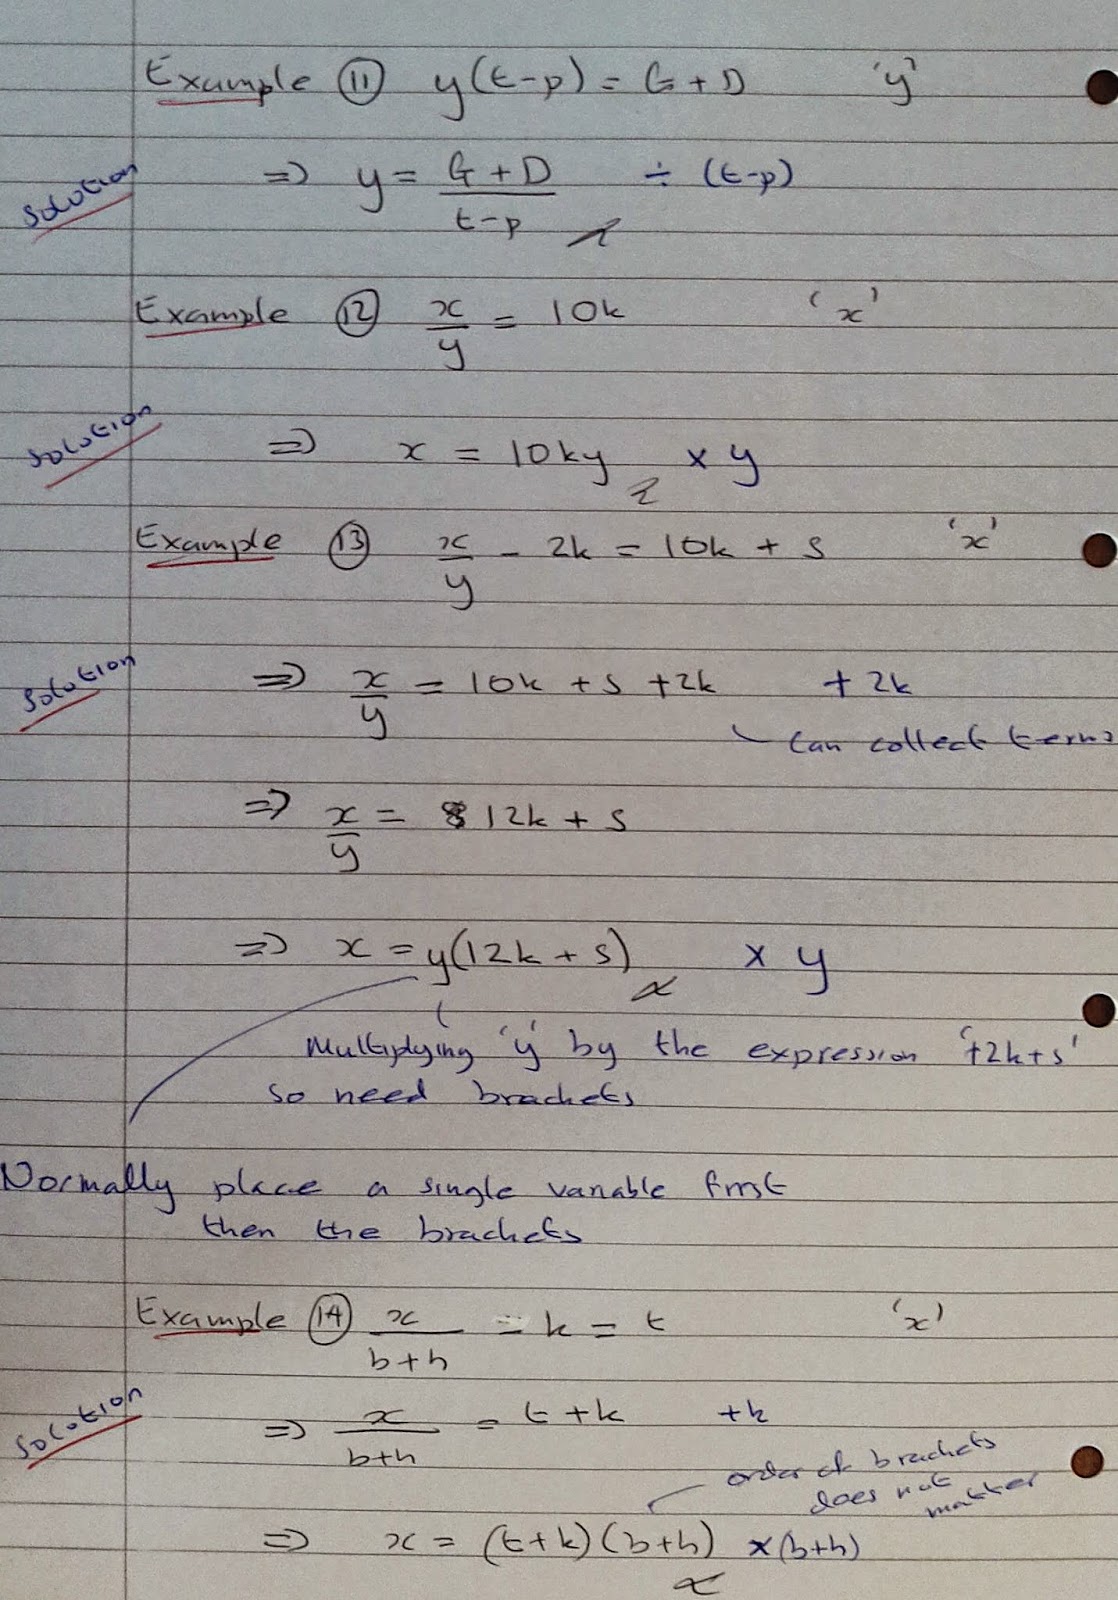 Example ⑪ y(t-p) = G + D 'y'
Solution ⇒ y = (G + D)/(t-p) ÷ (t-p)
Example ⑫ x/y = 10k 'x'
Solution ⇒ x = 10ky × y
Example ⑬ x/y - 2k = 10k + s 'x'
Solution ⇒ x/y = 10k + s + 2k + 2k
can collect terms
⇒ x/y = 12k + s
⇒ x = y(12k + s) × y
Multiplying 'y' by the expression '12k+s'
so need brackets
Normally place a single variable first
then the brackets
Example ⑭ x/(b+h) - k = t 'x'
Solution ⇒ x/(b+h) = t + k +k
order of brackets
does not
matter
⇒ x = (t+k)(b+h) ×(b+h)